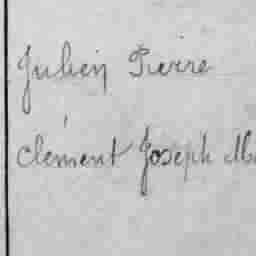 Julien Pierre
Clément Joseph